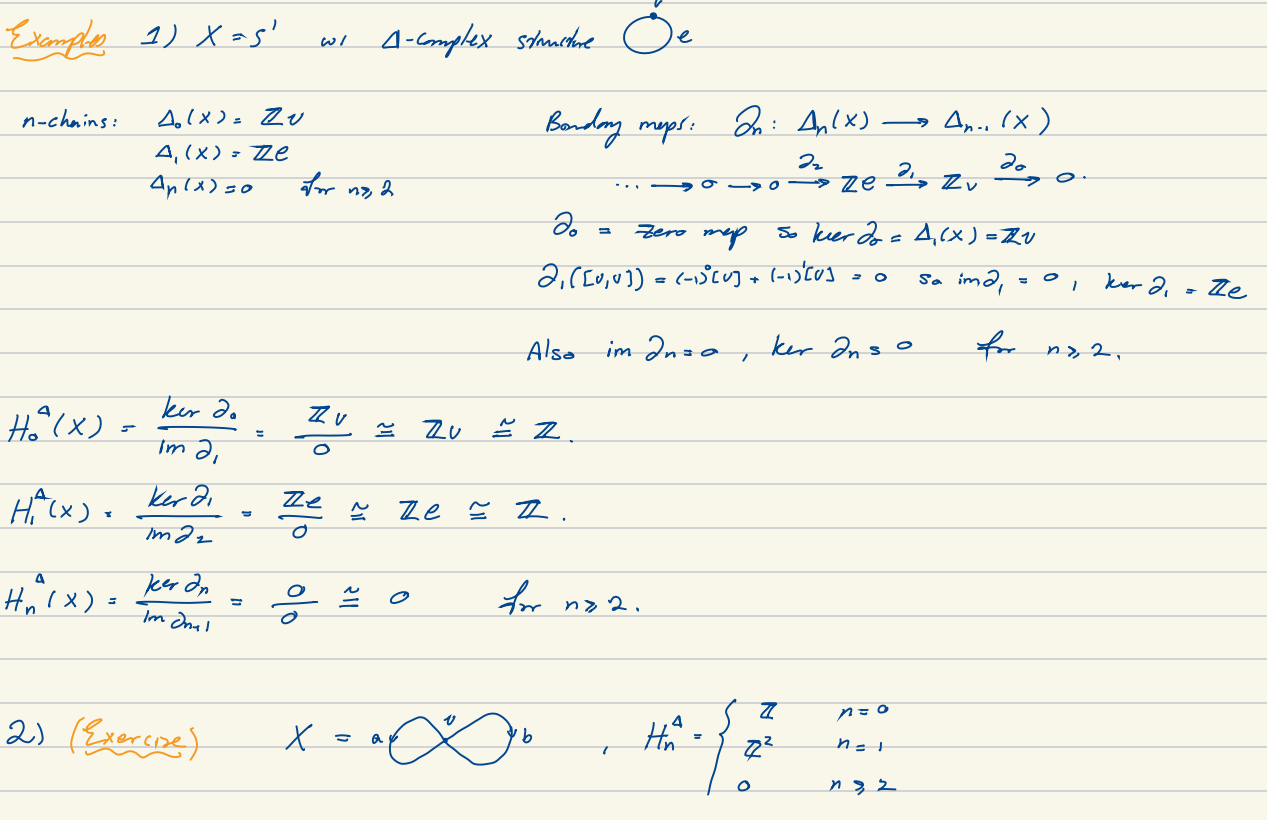 Examples 1) X = S¹ w/ Δ-complex structure v e
n-chains: Δ₀(X) = ℤv
Δ₁(X) = ℤe
Δₙ(X) = 0 for n ≥ 2
Bonday maps: ∂ₙ : Δₙ(X) ⟶ Δₙ₋₁(X)
⋯ ⟶ 0 ⟶ 0 ⟶^{∂₂} ℤe ⟶^{∂₁} ℤv ⟶^{∂₀} 0.
∂₀ = zero map so ker ∂₀ = Δ₁(X) = ℤv
∂₁([v,v]) = (-1)⁰[v] + (-1)¹[v] = 0 so im ∂₁ = 0, ker ∂₁ = ℤe
Also im ∂ₙ = 0, ker ∂ₙ = 0 for n ≥ 2.
H₀^Δ(X) = ker ∂₀ / im ∂₁ = ℤv / 0 ≅ ℤv ≅ ℤ.
H₁^Δ(X) = ker ∂₁ / im ∂₂ = ℤe / 0 ≅ ℤe ≅ ℤ.
Hₙ^Δ(X) = ker ∂ₙ / im ∂ₙ₊₁ = 0 / 0 ≅ 0 for n ≥ 2.
2) (Exercise) X = a v b , Hₙ^Δ = { ℤ n = 0
ℤ² n = 1
0 n ≥ 2